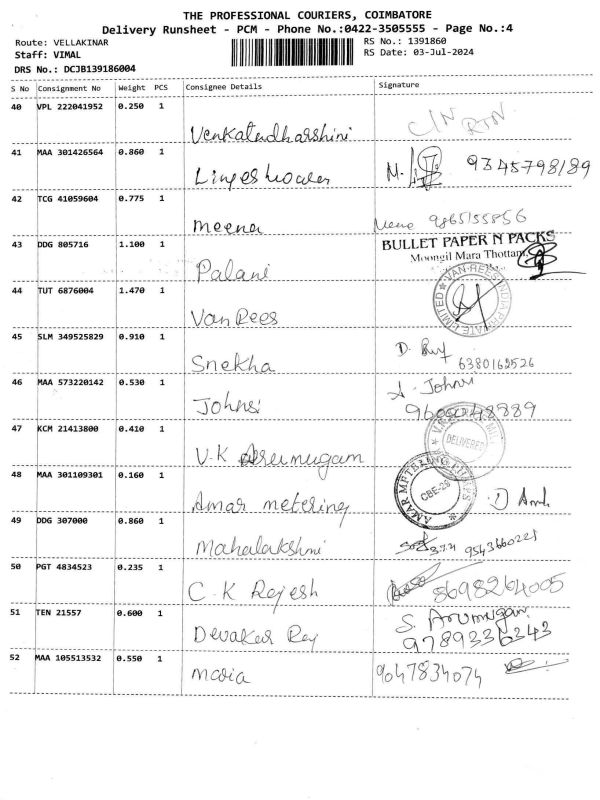 THE PROFESSIONAL COURIERS, COIMBATORE
Delivery Runsheet - PCM - Phone No.:0422-3505555 - Page No.:4
Route: VELLAKINAR
RS No.: 1391860
Staff: VIMAL
RS Date: 03-Jul-2024
DRS No.: DCJB139186004
S No Consignment No Weight PCS Consignee Details Signature
40 VPL 222041952 0.250 1 Venkatadharshini C/N RTN
41 MAA 301426564 0.860 1 Lingeshwaren M. 9345798189
42 TCG 41059604 0.775 1 Meena 9865155856
43 DDG 805716 1.100 1 Palani BULLET PAPER N PACKS
Moongil Mara Thottam,
44 TUT 6876004 1.470 1 Van Rees VAN REES INDIA PRIVATE LIMITED
45 SLM 349525829 0.910 1 Snekha D. 6380162526
46 MAA 573220142 0.530 1 Johnsi A. Johnsi
47 KCM 21413800 0.410 1 V.K Arumugam DELIVERED
48 MAA 301109301 0.160 1 Amar metering AMAR METERING PUMPS CBE-29
49 DDG 307000 0.860 1 Mahalakshmi 9543660221
50 PGT 4834523 0.235 1 C.K Rajesh 8698264005
51 TEN 21557 0.600 1 Devakar Raj S. Arumugam
9789336343
52 MAA 105513532 0.550 1 Maria 9047834074